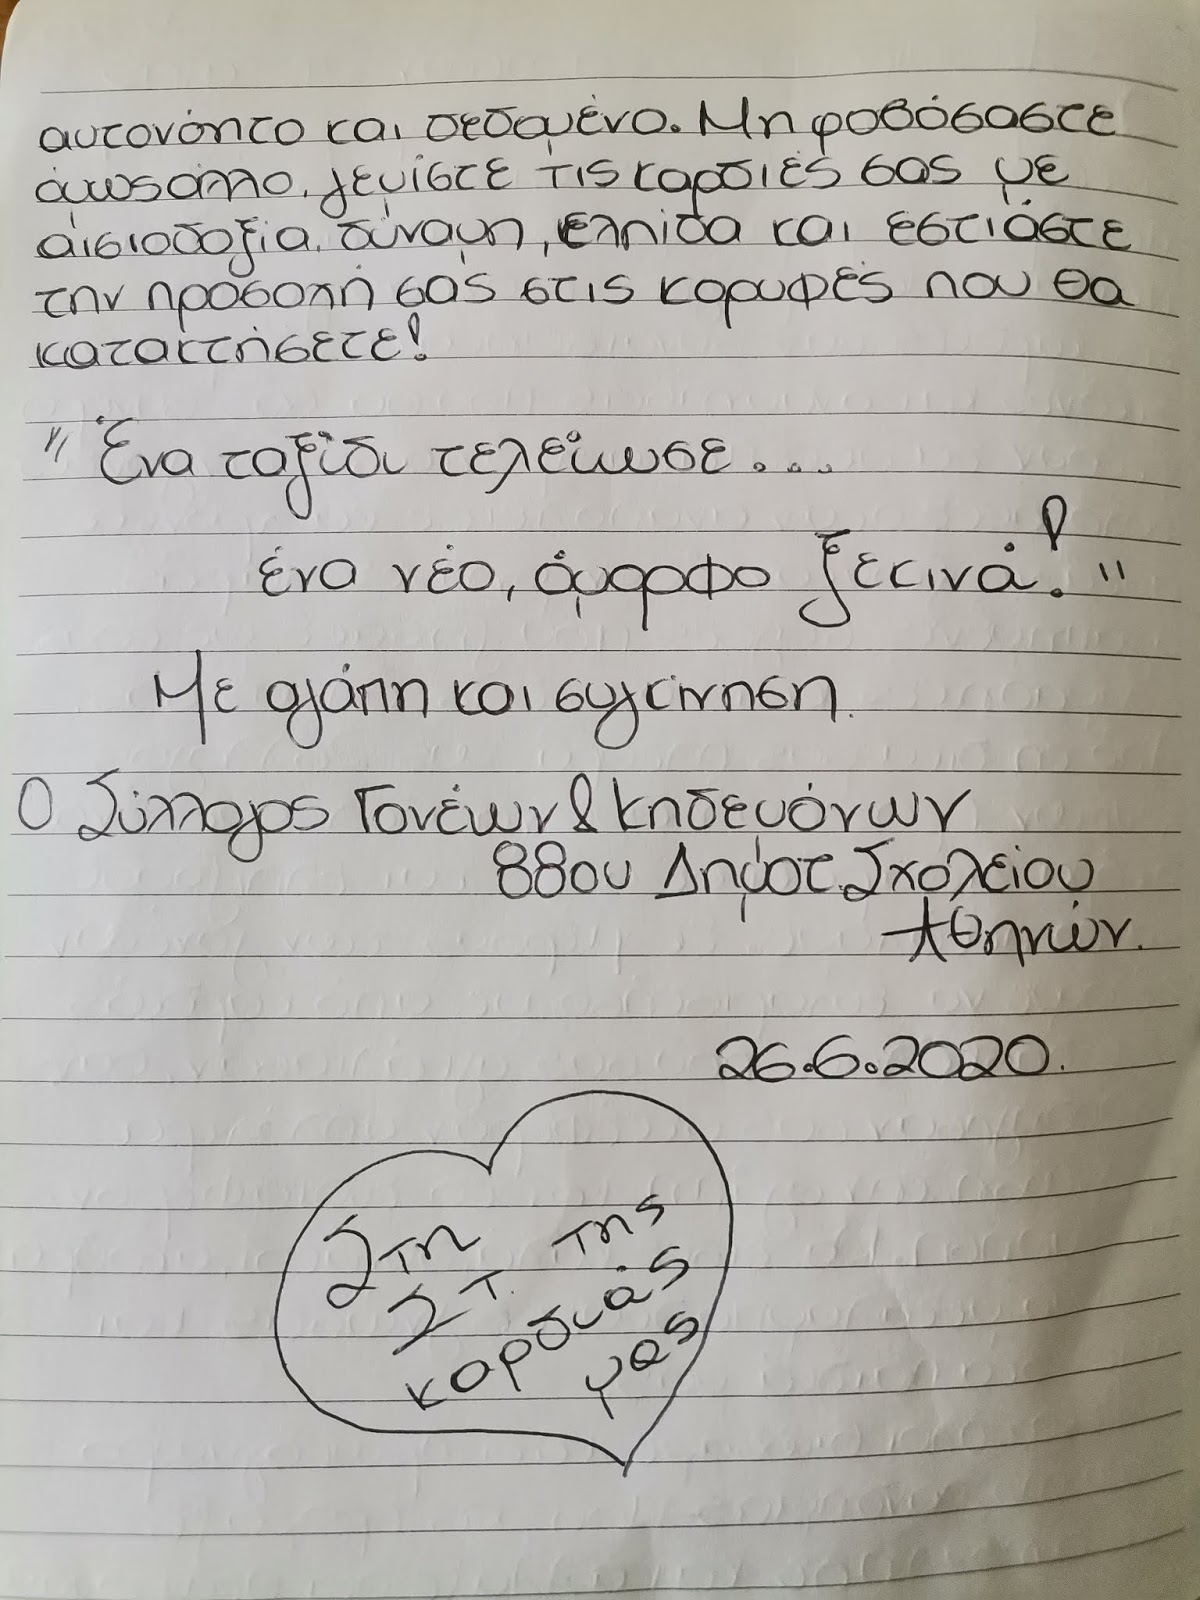 αυτονόητο και δεδομένο. Μη φοβόσαστε
όμως άλλο, γεμίστε τις καρδιές σας με
αισιοδοξία, δύναμη, ελπίδα και εστιάστε
την προσοχή σας στις κορυφές που θα
κατακτήσετε!
"Ένα ταξίδι τελείωσε...
ένα νέο, όμορφο ξεκινά!"
Με αγάπη και συγκίνηση
Ο Σύλλογος Γονέων & Κηδεμόνων
88ου Δημοτ. Σχολείου
Αθηνών.
26.6.2020.
Στη
ΣΤ. της
καρδιάς
μας